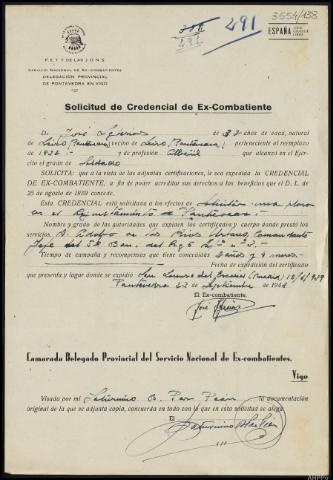 3554/138
388
291
291
ESPAÑA
F. E. T. Y DE LAS J. O. N. S.
SERVICIO NACIONAL DE EX-COMBATIENTES
DELEGACIÓN PROVINCIAL
DE PONTEVEDRA EN VIGO
Solicitud de Credencial de Ex-Combatiente
D. José Iglesias de 32 años de edad, natural
de Leiro, Pontevedra vecino de Leiro, Pontevedra, perteneciente al reemplazo
de 1932 y de profesión Albañil que alcanzó en el Ejér-
cito el grado de Soldado
SOLICITA: que a la vista de las adjuntas certificaciones, le sea expedida la CREDENCIAL
DE EX-COMBATIENTE, a fin de poder acreditar sus derechos a los beneficios que el D. L. de
25 de agosto de 1939 concede.
Esta CREDENCIAL está solicitada a los efectos de solicitar una plaza
en el Ayuntamiento de
Nombre y grados de las autoridades que expiden los certificados y cuerpo donde prestó los
servicios. D. Adolfo de los Ríos Urbano, Comandante
Jefe del 5º Bon. del Rgto
Tiempo de campaña y recompensas que tiene concedidas 2 años y 4 meses.-
Fecha de expedición del certificado
que presenta y lugar donde se expidió San Lorenzo del Escorial (Madrid) 12/6/939
Pontevedra 22 de Septiembre de 194
El Ex-combatiente,
José Iglesias
Camarada Delegado Provincial del Servicio Nacional de Ex-combatientes.
Vigo
Visado por mí Saturnino la documentación
original de la que se adjunta copia, concuerda en todo con lo que en esta solicitud se alega
Saturnino